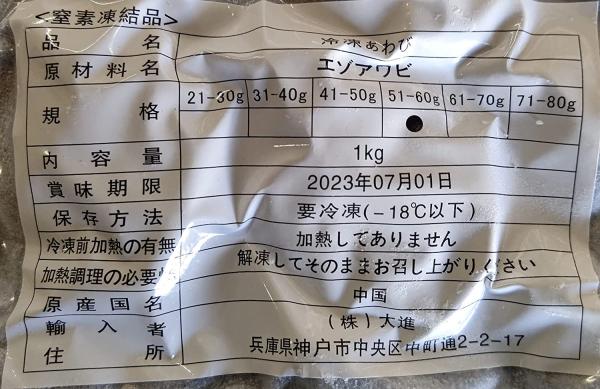 <窒素凍結品>
品名 冷凍あわび
原材料名 エゾアワビ
規格 21-30g 31-40g 41-50g 51-60g 61-70g 71-80g
内容量 1kg
賞味期限 2023年07月01日
保存方法 要冷凍(-18℃以下)
冷凍前加熱の有無 加熱してありません
加熱調理の必要性 解凍してそのままお召し上がりください
原産国名 中国
輸入者 (株)大進
住所 兵庫県神戸市中央区中町通2-2-17